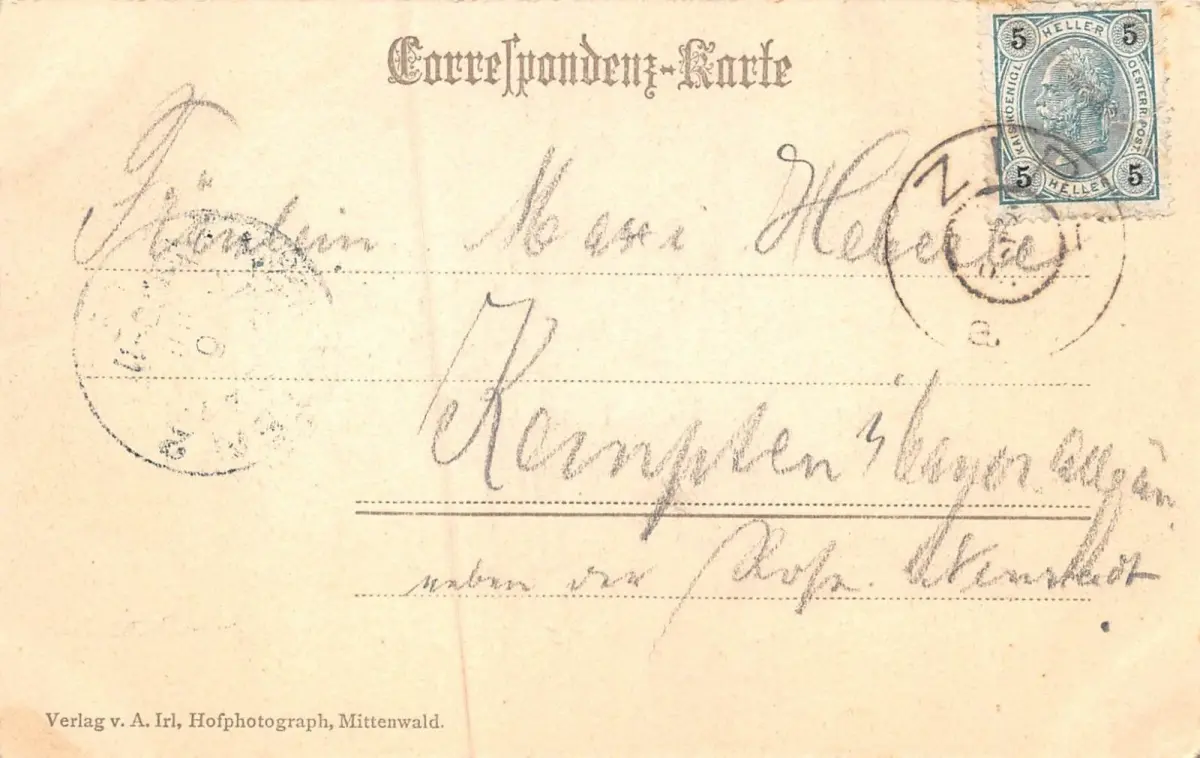 Correſpondenz-Karte
5 HELLER 5
KAIS. KOENIGL. OESTERR. POST.
5 HELLER 5
Fräulein Maxi
Kempten i bayer. Allgäu
neben der Rose. Neustadt
Verlag v. A. Irl, Hofphotograph, Mittenwald.